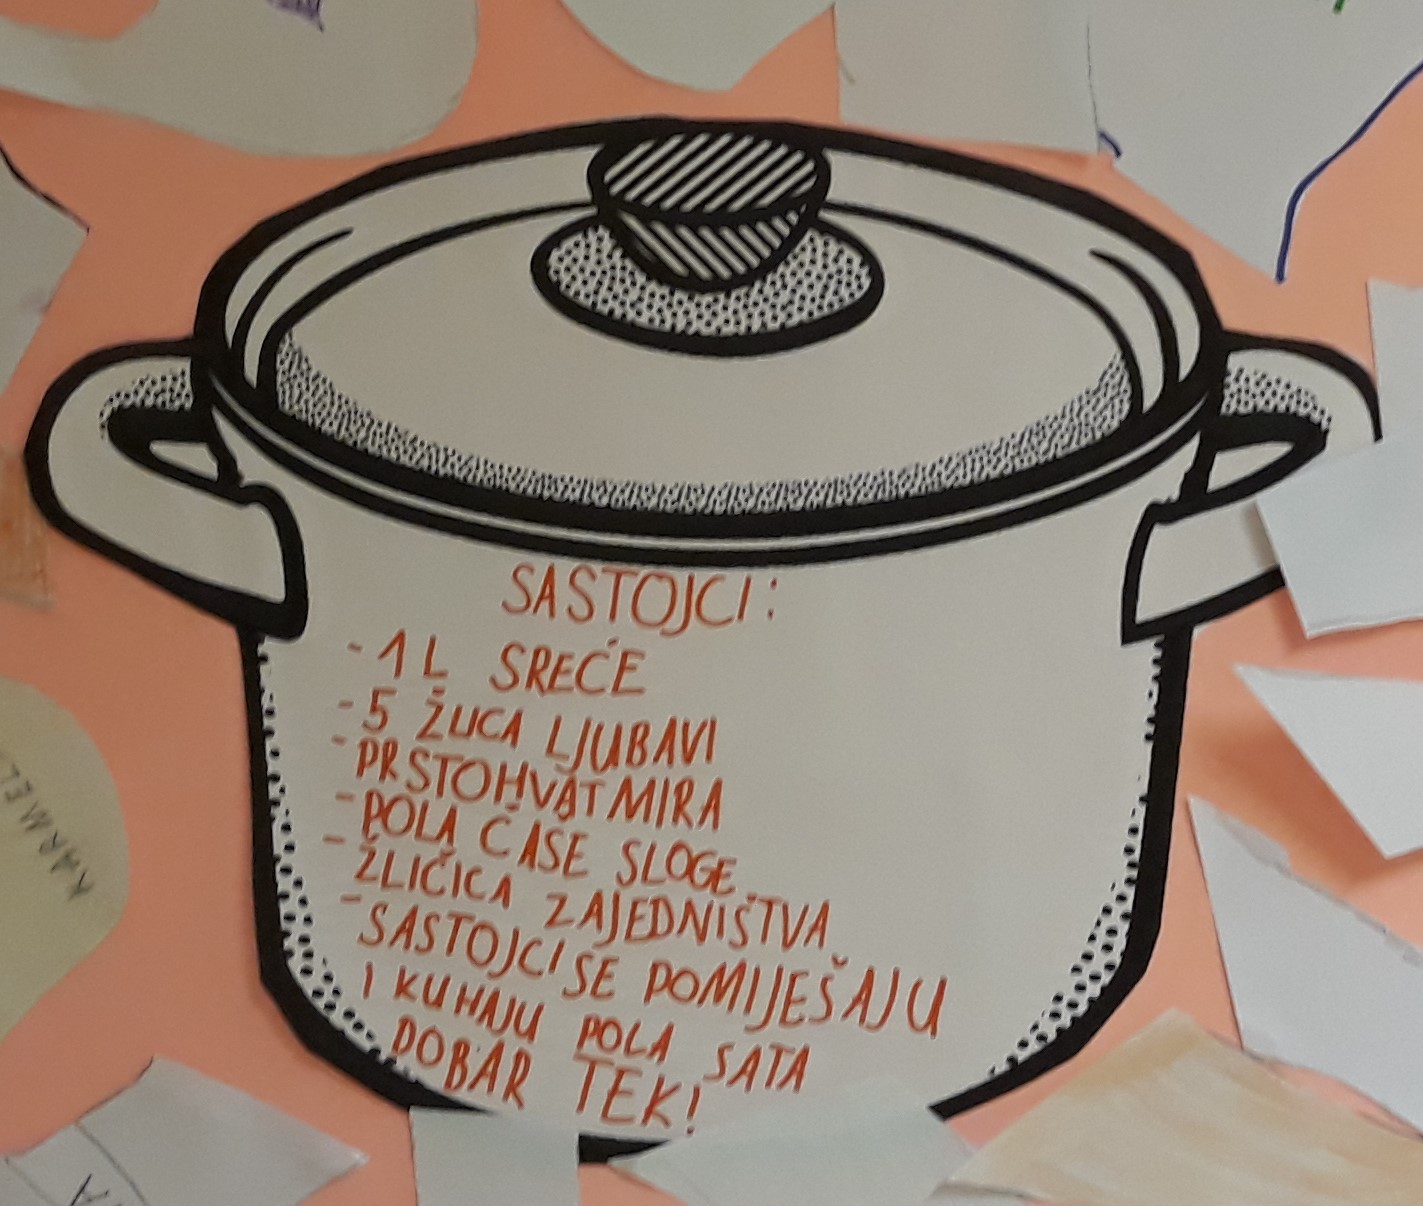 SASTOJCI:
- 1 L SREĆE
- 5 ŽLICA LJUBAVI
- PRSTOHVAT MIRA
- POLA ČAŠE SLOGE
- ŽLIČICA ZAJEDNIŠTVA
- SASTOJCI SE POMIJEŠAJU
I KUHAJU POLA SATA
DOBAR TEK!